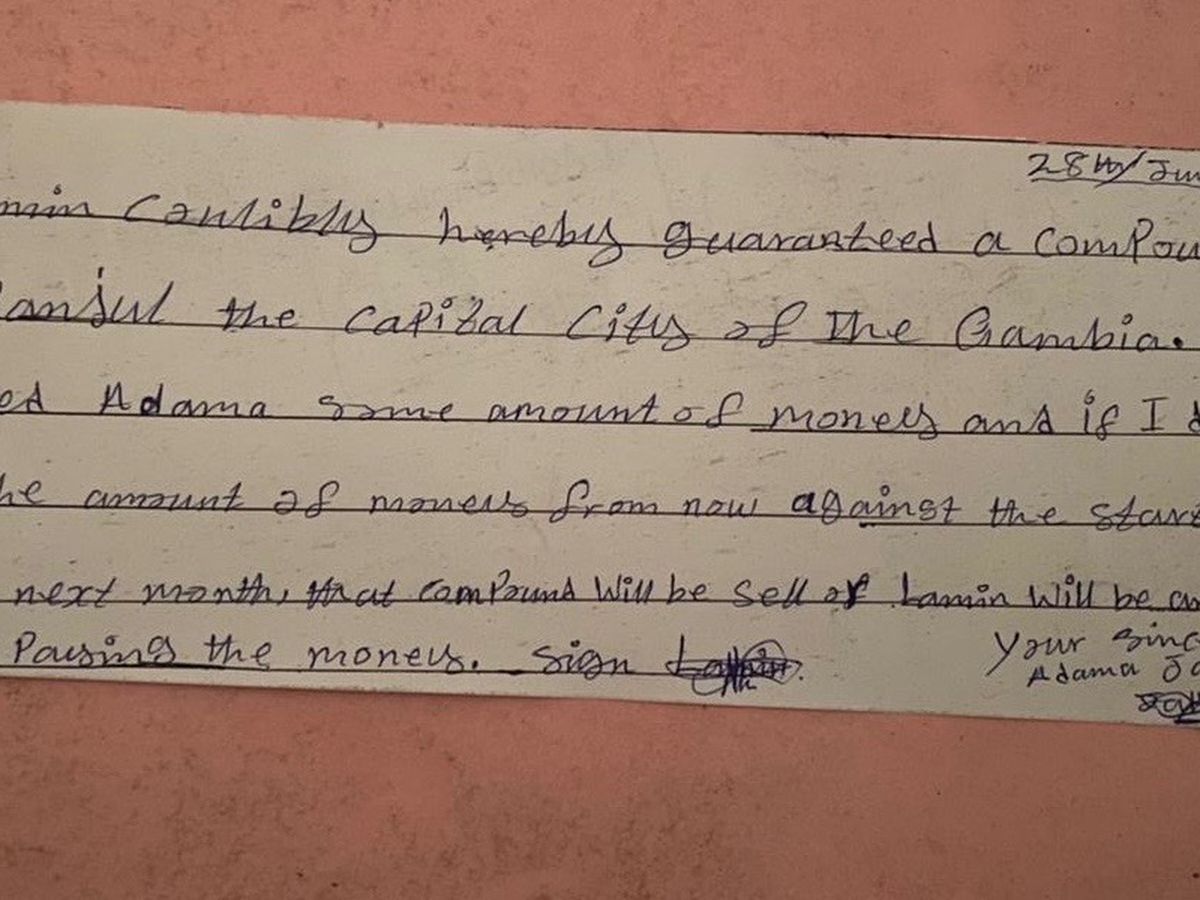 28th/Jun
min Canlibly hereby guaranteed a comPou
anjul the caPital City of The Gambia.
ed Adama some amount of money and if I d
he amount of money from now against the start
next month, that comPound Will be sell or Lamin Will be an
Paying the money. Sign
your sinc
Adama Ja